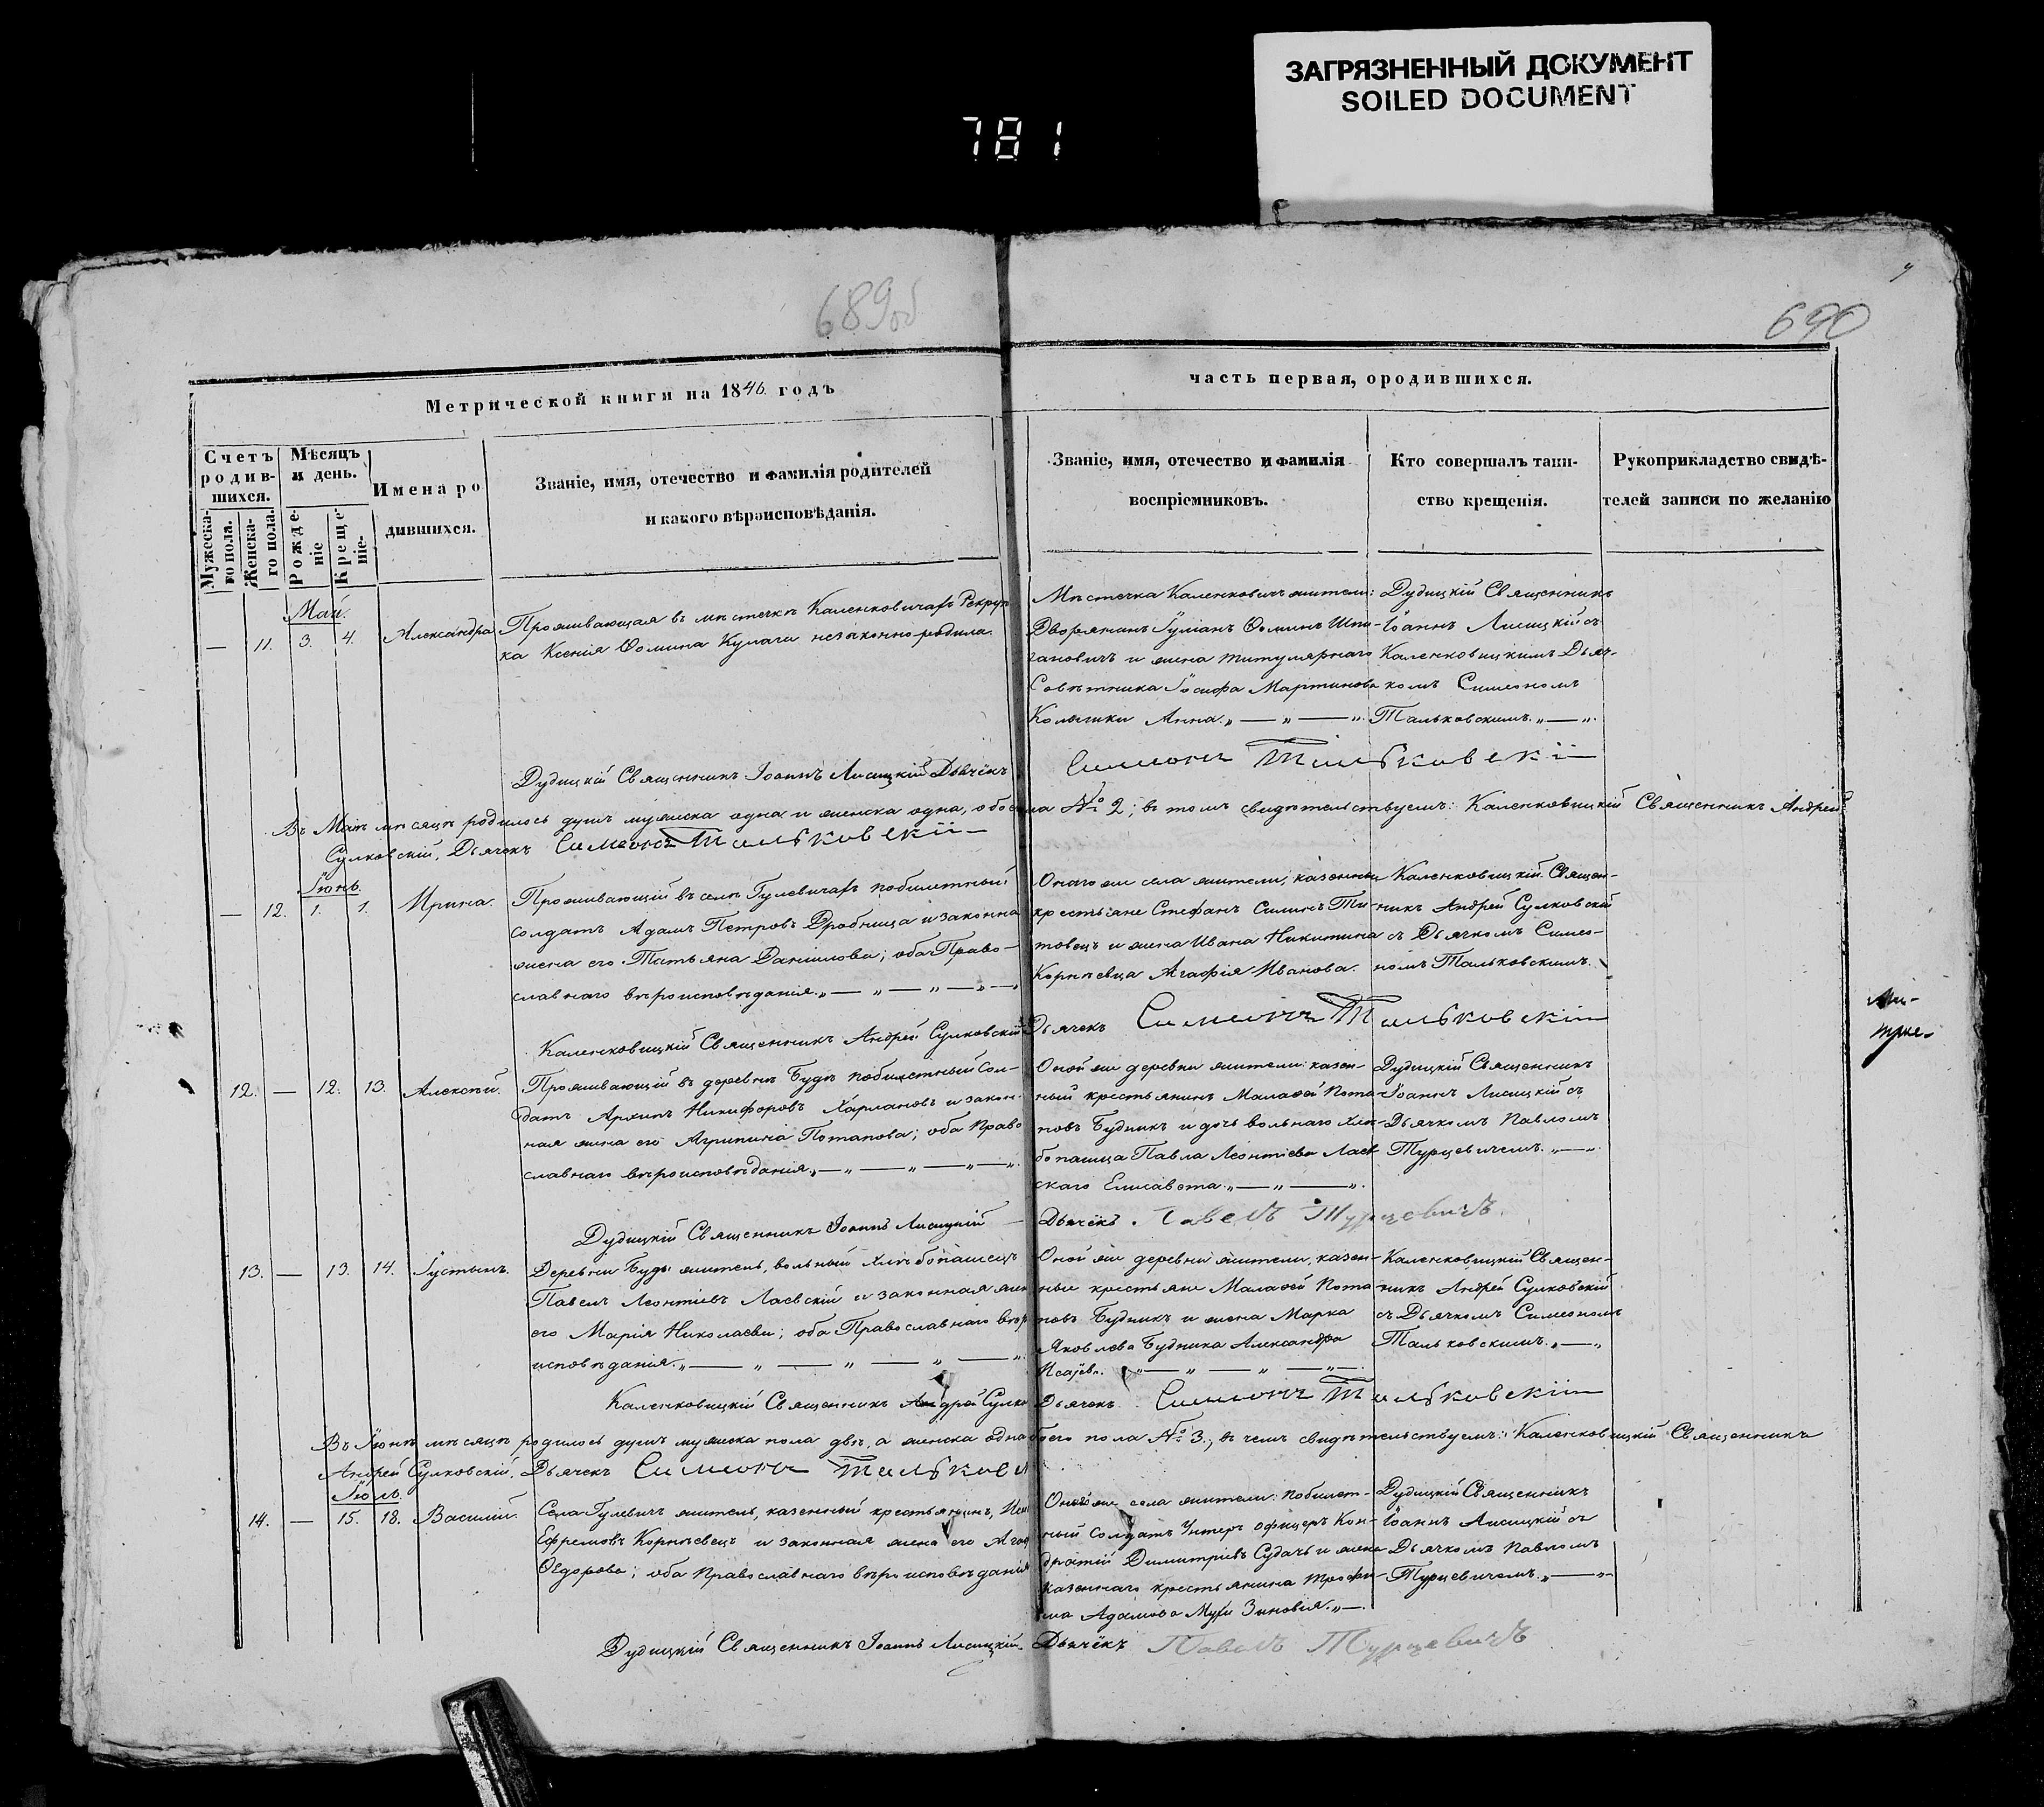 ЗАГРЯЗНЕННЫЙ ДОКУМЕНТ
SOILED DOCUMENT
781
689об
690
Метрической книги на 1846 годъ
часть первая, ородившихся.
Счетъ родив-шихся.
Мужеска-го пола.
Женска-го пола.
Мѣсяцъ и день.
Рожде-ніе
Креще-ніе.
Имена ро
дившихся.
Званіе, имя, отечество и фамилія родителей
и какого вѣроисповѣданія.
Званіе, имя, отечество и фамилія
воспріемниковъ.
Кто совершалъ таин-
ство крещенія.
Рукоприкладство свидѣ-
телей записи по желанію
Май.
— 11. 3. 4. Александра
Проживающая въ мѣстечкѣ Каленковичахъ Рекрут
ка Ксенія Ѳомина Кулага незаконно родила.
Мѣстечка Каленковичъ жители:
Дворянинъ Іуліанъ Ѳоминъ Шпи-
гановичъ и жена титулярнаго
Совѣтника Іосифа Мартинова
Анна. „ — „ — „.
Дудицкій Священникъ
Іоаннъ Лисицкій съ
Каленковицкимъ Дьяч-
комъ Симеономъ
Тальковскимъ. „ — „.
Дудицкій Священникъ Іоаннъ Лисицкій Дьячёкъ Симеонъ Тальковскій
Въ Маѣ мѣсяцѣ родилось душъ мужска одна и женска одна, обоего пола № 2; въ томъ свидѣтельствуемъ: Каленковицкій Священникъ Андрей
Сулковскій, Дьячекъ Симеонъ Тальковскій
Іюнь.
— 12. 1. 1. Ирина.
Проживающій въ селѣ Гулевичахъ побилетный
солдатъ Адамъ Петровъ Дробница и законна
жена его Татьяна Данилова; оба Право-
славнаго вѣроисповѣданія. „ — „ — „ — „ — „
Онаго же села жители, казенны
крестьяне Стефанъ Силинъ Ти-
товецъ и жена Ивана Никитина
Корнѣевца Агафія Иванова.
Каленковицкій Священ-
никъ Андрей Сулковскій
съ Дьячкомъ Симео-
номъ Тальковскимъ.
Каленковицкій Священникъ Андрей Сулковскій Дьячекъ Симеонъ Тальковскій
12. — 12. 13. Алексѣй.
Проживающій въ деревнѣ Будѣ побилетный Сол-
датъ Архипъ Никифоровъ Харлановъ и закон-
ная жена его Агрипина Потапова; оба Право
славнаго вѣроисповѣданія. „ — „ — „ — „ — „.
Оной же деревни жители: казен-
ный крестьянинъ Малафей Пота-
повъ Будникъ и дочь вольнаго хлѣ-
бопашца Павла Леонтіева Лаев
скаго Елисавета. „ — „ — „.
Дудицкій Священникъ
Іоаннъ Лисицкій съ
Дьячкомъ Павломъ
Турцевичемъ. „ — „.
Дудицкій Священникъ Іоаннъ Лисицкій — Дьячёкъ. Павелъ Турцевичъ.
13. — 13. 14. Іустинъ.
Деревни Буды житель, вольный хлѣбопашецъ
Павелъ Леонтіевъ Лаевскій и законная жен
его Марія Николаева; оба Православнаго вѣр
исповѣданія. „ — „ — „ — „ — „.
Оной же деревни жители, казен-
ные крестьяне Малафей Пота-
повъ Будникъ и жена Марка
Яковлева Будника Александра
Исаіева. „ — „ — „ — „.
Каленковицкій Священ-
никъ Андрей Сулковскій
съ Дьячкомъ Симеономъ
Тальковскимъ. „ — „
Каленковицкій Священникъ Андрей Сулко Дьячекъ Симеонъ Тальковскій
Въ Іюнѣ мѣсяцѣ родилось душъ мужска пола двѣ, а женска одна обоего пола № 3.; въ чемъ свидѣтельствуемъ: Каленковицкій Священникъ
Андрей Сулковскій, Дьячекъ Симеонъ Тальковс
Іюль.
14. — 15. 18. Василій.
Села Гулевичъ житель, казенный крестьянинъ,
Ефремовъ Корнѣевецъ и законная жена его Агаф
Ѳедорова; оба Православнаго вѣроисповѣданія
Онаго же села жители: побилет-
ный Солдатъ Унтеръ офицеръ Кон-
дратій Димитріевъ Судачъ и жена
казеннаго крестьянина Трофи-
ма Адамова Зиновія. „ —.
Дудицкій Священникъ
Іоаннъ Лисицкій съ
Дьячкомъ Павломъ
Турцевичемъ. „ — „
Дудицкій Священникъ Іоаннъ Лисицкій. Дьячёкъ Павелъ Турцевичъ